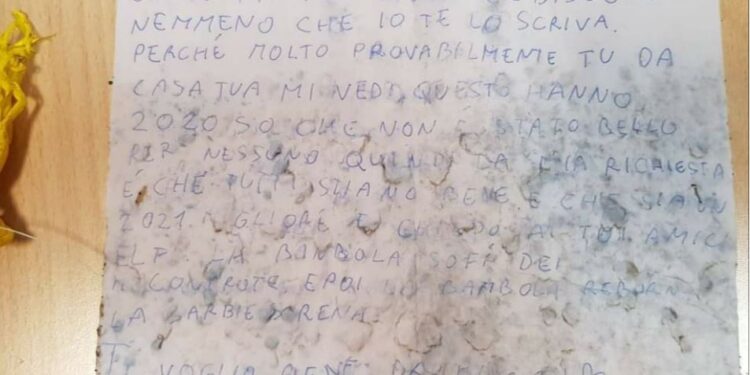 NEMMENO CHE IO TE LO SCRIVA.
PERCHÉ MOLTO PROVABILMENTE TU DA
CASA TUA MI VEDI, QUESTO HANNO
2020 SO CHE NON È STATO BELLO
PER NESSUNO QUINDI LA MIA RICHIESTA
È CHE TUTTI STIANO BENE E CHE SIA UN
2021 MIGLIORE E CHIEDO AI TUOI AMICI
ELF. LA BAMBOLA SOFF DEI
E POI LA BAMBOLA REBORN
LA BARBIE SIRENA.
TI VOGLIO BENE